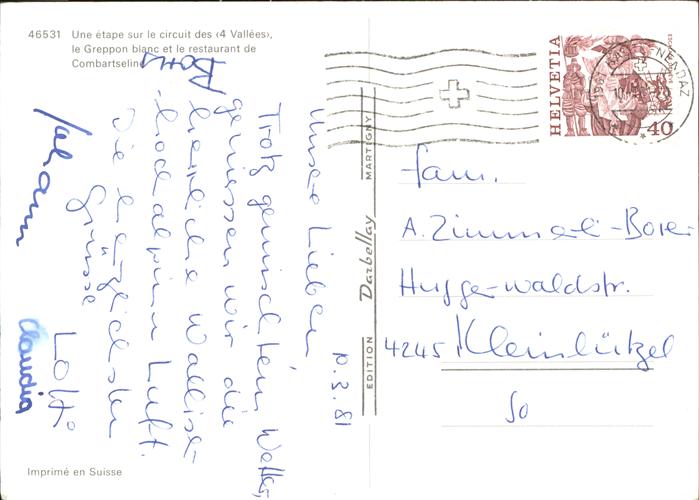 46531 Une étape sur le circuit des ‹4 Vallées›,
le Greppon blanc et le restaurant de
Combartseline
10.3.81
Unsere Lieben
Trotz gemischtem Wetter,
geniessen wir die
herrliche Wallise-
Hochalpine Luft.
Die herzlichsten
Grüsse
Lotti
Johann
Claudia
Imprimé en Suisse
EDITION Darbellay MARTIGNY
HELVETIA
40
NENDAZ
Fam.
A. Zimmerli-Borer
Huggerwaldstr.
4245 Kleinlützel
So